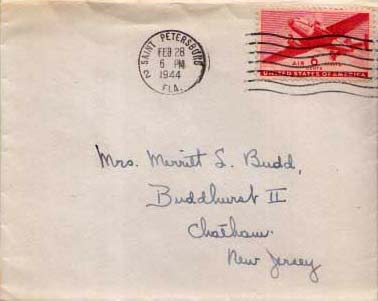 SAINT PETERSBURG
2
FEB 28
6 PM
1944
FLA.
AIR 6 CENTS MAIL
UNITED STATES OF AMERICA
Mrs. Merritt L. Budd,
Buddhurst II
Chatham.
New Jersey